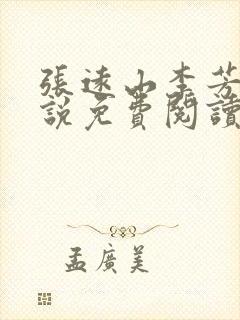 張遠山李芳
說免費閱讀
孟廣美